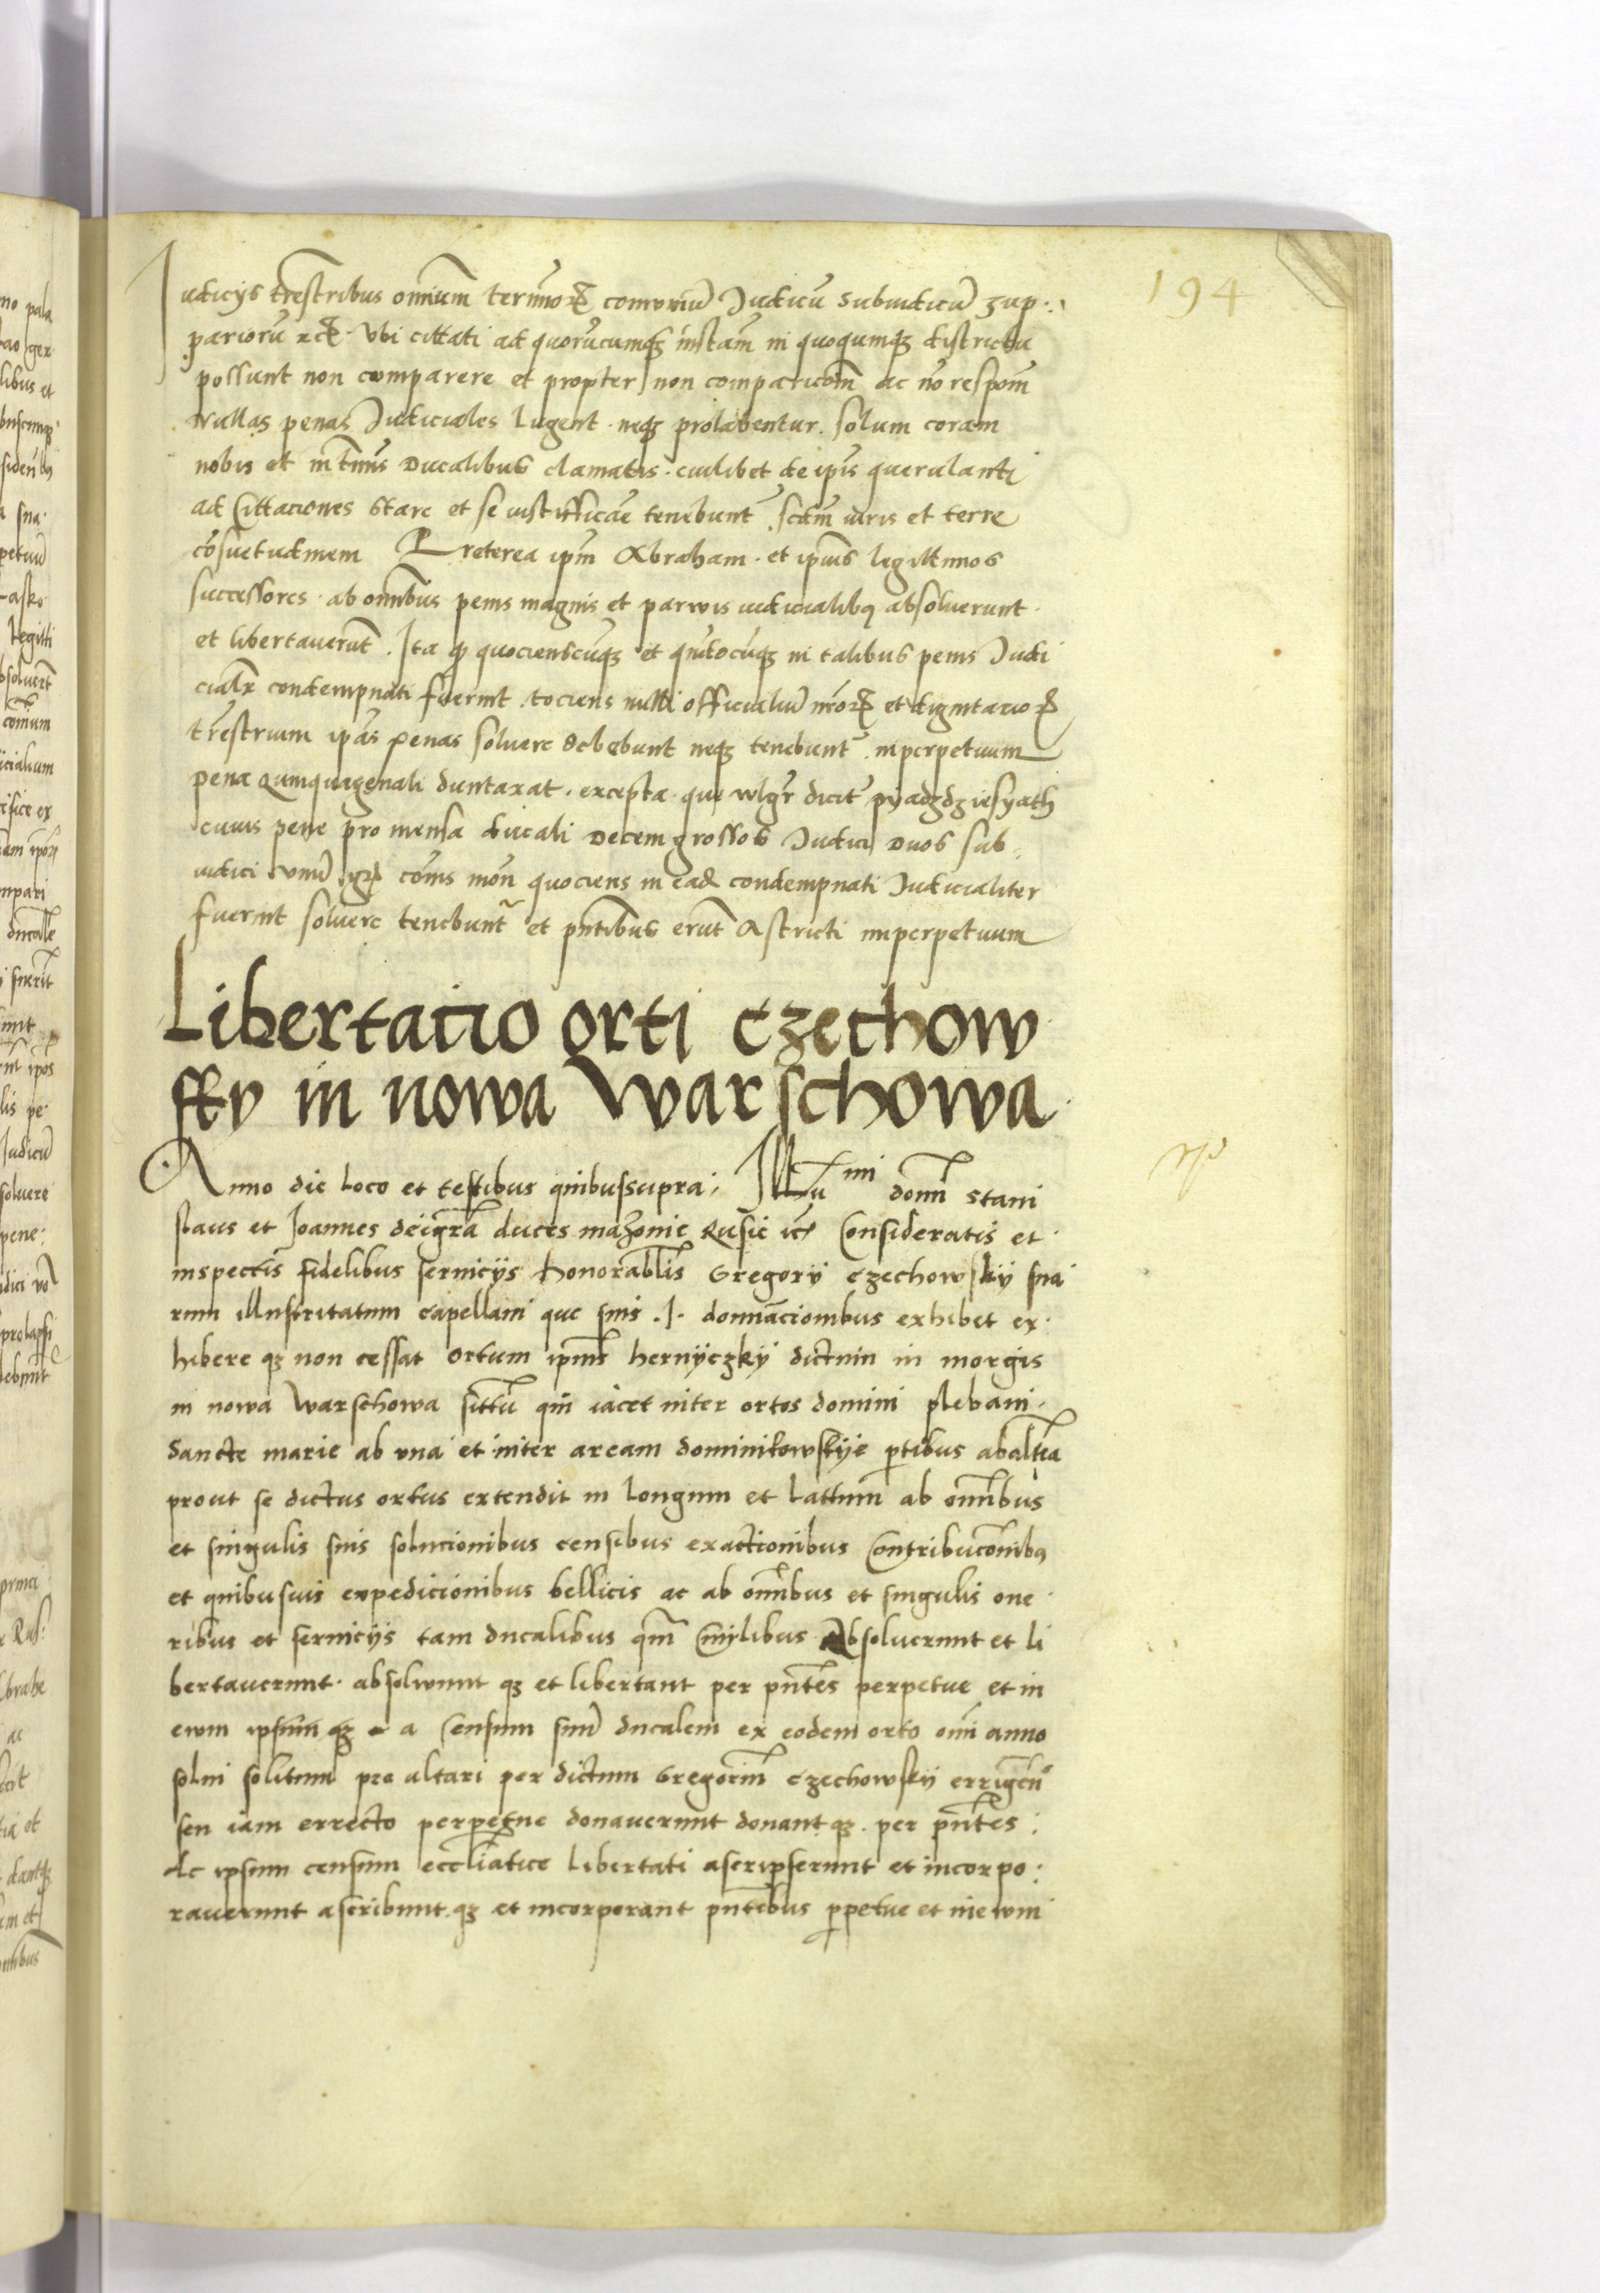 194
Iudicÿs trestribus omnium terminorꝝ comuniū Iudicū Subiudicū zup
pariorū etc. Vbi cittati ad quorūcumqꝫ instam̄ in quoqumqꝫ districtu
possunt non comparere et propter non comparicom̄ ac nō respom̄
Nullas penas Iudiciales lugent neqꝫ prolabentur. solum coram
nobis et in tm̄is Ducalibus clamatis. cuilibet de ip̄is querulanti
ad Cittaciones Stare et se iustifficare tenebunt̄. scdm̄ iuris et terre
cōsuetudinem Preterea ip̄m Abraham. et ip̄ius legittimos
successores. ab om̄ibus penis magnis et parwis iudicialibꝫ absoluerunt.
et libertauerūt. Ita qꝫ quocienscūqꝫ et qn̄docūqꝫ in talibus penis Iudi
cialr̄ condempnati fuerint. tociens nulli officialiū nr̄orꝝ et dignitariorꝝ
tr̄estrium ip̄as penas soluere debebunt neqꝫ tenebunt̄. inperpetuum
pena Qumquagenali duntaxat. excepta. que wlgr̄ dicit̄ pyadzdziesyath
cuius pene pro mensa ducali Decem grossos Iudici Duos sub
iudici vnū gr̄ com̄s mon̄ quociens in ead̄ condempnati Iudicialiter
fuerint soluere tenebunt̄ et pn̄tibus erūt Astricti inperpetuum
Libertacio orti czechow
sky in nowa Warschowa
Anno die loco et testibus quibussupra. Illu mi domī Stani
slaus et Ioannes deigr̄a duces mazouie Rusie etc̄ Consideratis et
inspectis fidelibus seruicÿs honorabilis Gregorÿ czechowskÿ sua
rum illustritatum capellani que suis. I. donnacionibus exhibet ex
hibere qꝫ non cessat Ortum ip̄ius hernÿczkÿ dictum in morgis
in nowa Warschowa sittū qui iacet inter ortos domini plebani
Sancte marie ab vna et inter aream dominikowskÿe p̄tibus abalt̄ra
prout se dictus ortus extendit in longum et lattum ab om̄ibus
et singulis suis solucionibus censibus exactionibus Contribuc̄onibꝫ
et quibusuis expedicionibus bellicis ac ab om̄ibus et singulis one
ribus et seruicÿs tam ducalibus qm̄ Ciuilibus Absoluerunt et li
bertauerunt. absolwunt qꝫ et libertant per pn̄tes perpetue et in
ewm ipsum qꝫ a Censum suū ducalem ex eodem orto om̄i anno
solui solitum pro altari per dictum Gregoriū czechowskÿ errigen̄
seu iam errecto perpetue donauerunt donant qꝫ. per pn̄tes
Ac ipsum censum eccl̄iatice libertati ascripserunt et incorpo
rauerunt ascribunt qꝫ et incorporant pn̄tibus p̄petue et inewm